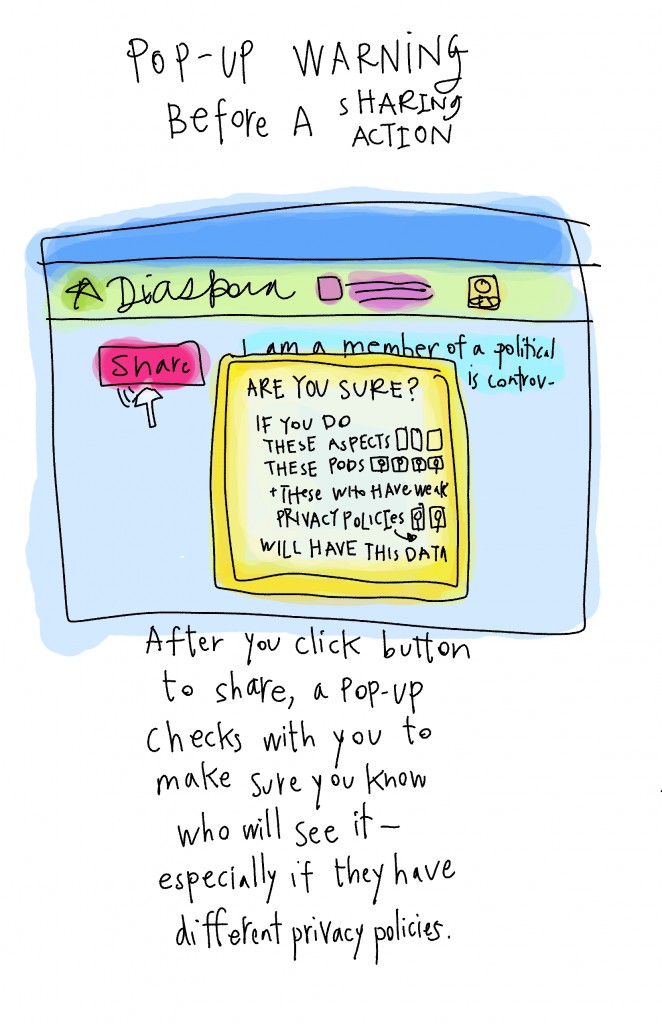 POP-UP WARNING
Before A SHARING
ACTION
Diaspora
Share
I am a member of a political
is controv-
ARE YOU SURE?
IF YOU DO
THESE ASPECTS
THESE PODS
+ THESE WHO HAVE WEAK
PRIVACY POLICIES
WILL HAVE THIS DATA
After you click button
to share, a POP-UP
checks with you to
make sure you know
who will see it –
especially if they have
different privacy policies.